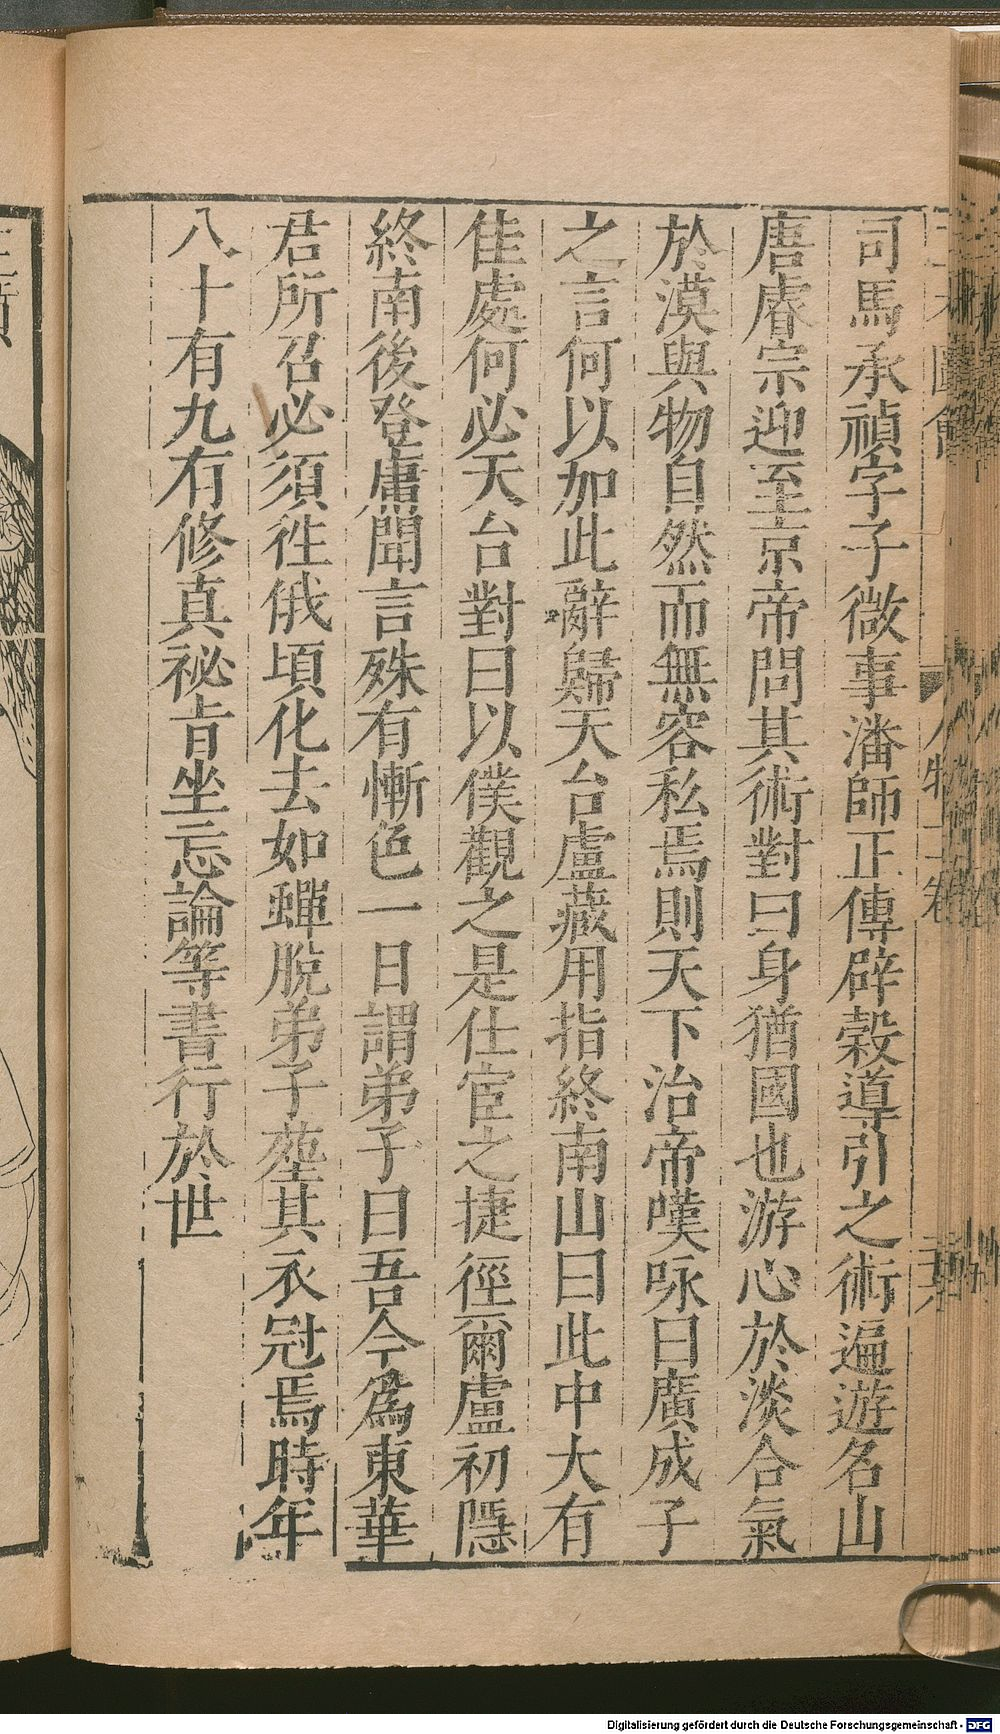 司馬承禎字子微事潘師正傳辟穀導引之術遍遊名山
唐睿宗迎至京帝問其術對曰身猶國也游心於淡合氣
於漠與物自然而無容私焉則天下治帝嘆咏曰廣成子
之言何以加此辭歸天台盧藏用指終南山曰此中大有
佳處何必天台對曰以僕觀之是仕宦之捷徑爾盧初隱
終南後登庸聞言殊有慚色一日謂弟子曰吾今為東華
君所召必須徃俄頃化去如蟬脫弟子塟其衣冠焉時年
八十有九有修真祕旨坐忘論等書行於世
Digitalisierung gefördert durch die Deutsche Forschungsgemeinschaft - DFG